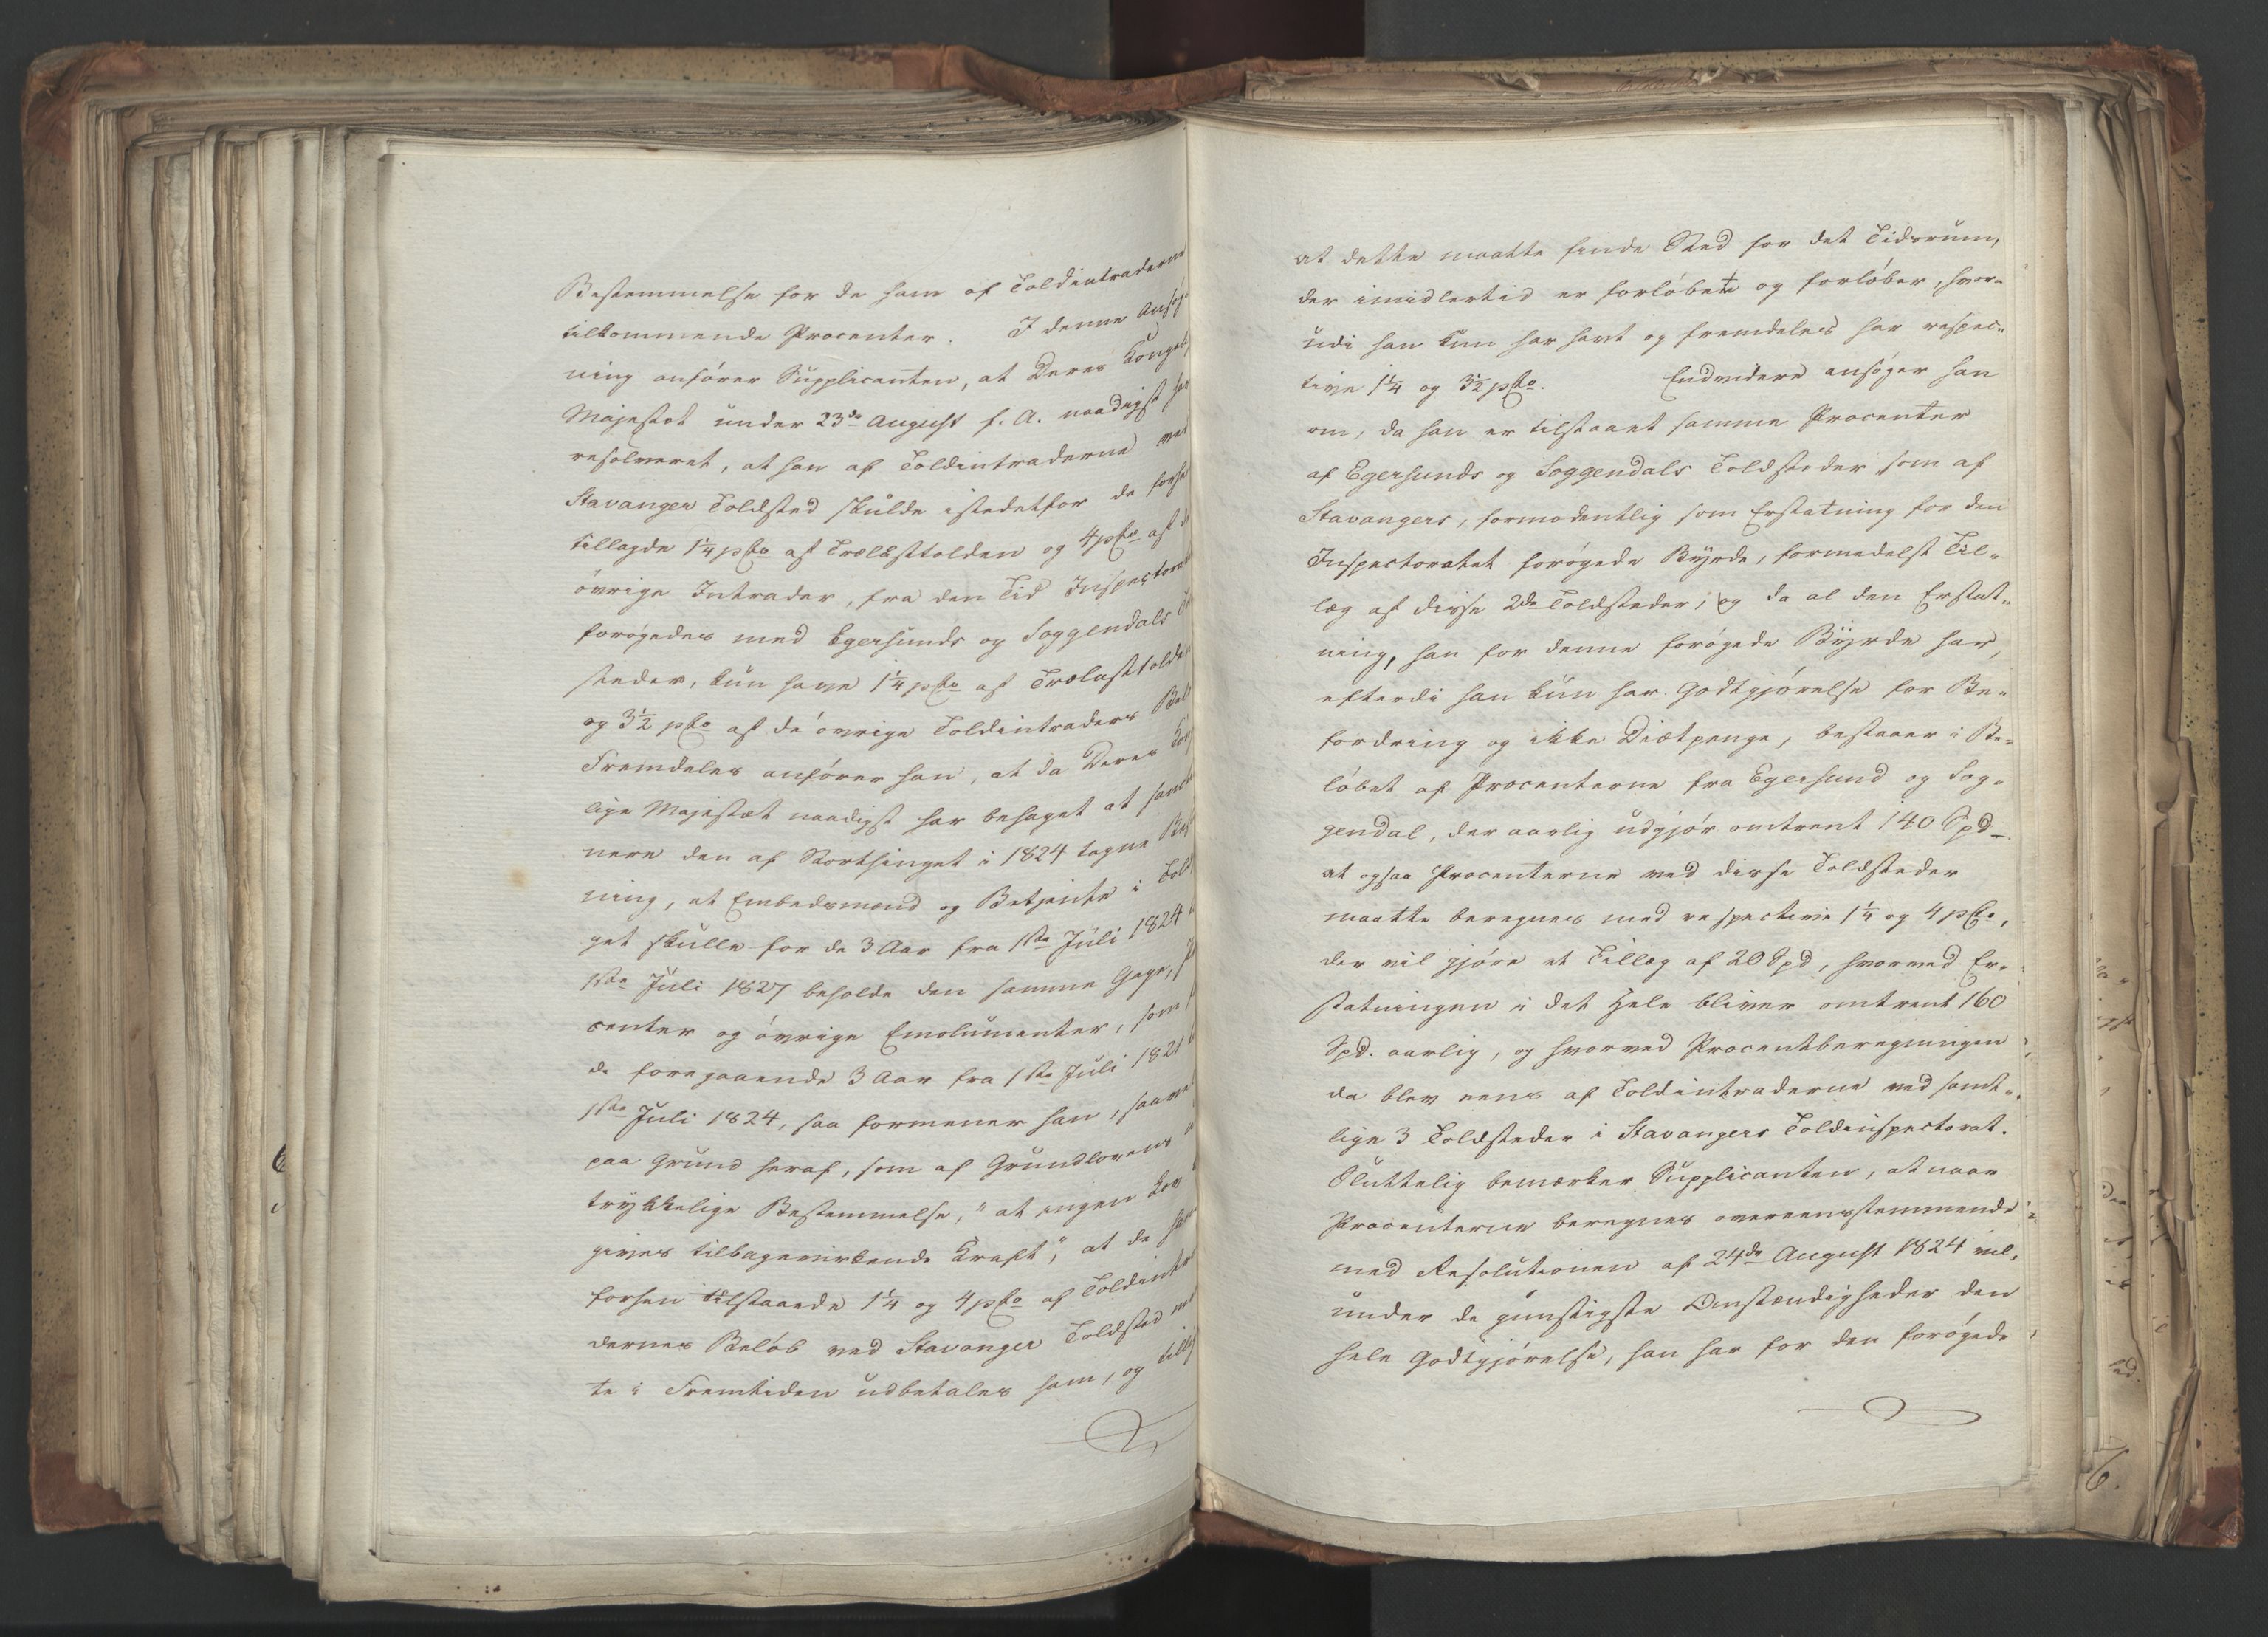 Bestemmelse for de ham af Toldintraderne
tilkommende Procenter. I denne Ansøg
ning anfører Supplicanten, at Deres Kongel
Majestæt under 23de August f. A. naadigst har
resolveret, at han af Toldintraderne ved
Stavanger Toldsted skulde istedetfor de forh
tillagde 1¼ pCto af Trælasttolden og 4 pCto af de
øvrige Intrader, fra den Tid Inspectorat
forøgedes med Egersunds og Soggendals Told
steder, kun have 1¼ pCto af Trælasttolden
og 3½ pCto af de øvrige Toldintraders Bel
Fremdeles anfører han, at da Deres Kong
lige Majestæt naadigst har behaget at sanc
nere den af Storthinget i 1824 tagne Bes
ning, at Embedsmænd og Betjente i Told
get skulle for de 3 Aar fra 1ste Juli 1824
1ste Juli 1827 beholde den samme Gage, P
center og øvrige Emolumenter, som
de foregaaende 3 Aar fra 1ste Juli 1821
1ste Juli 1824, saa formener han, saavel
paa Grund heraf, som af Grundlovens
trykkelige Bestemmelse, "at ingen Lov
gives tilbagevirkende Kraft", at de ham
forhen tilstaaede 1¼ og 4 pCto af Toldintra
dernes Beløb ved Stavanger Toldsted
te i Fremtiden udbetales ham, og tillige
at dette maatte finde Sted for det Tidsrum,
der imidlertid er forløbet og forløber, hvor-
udi han kun har havt og fremdeles har respec-
tive 1¼ og 3½ pCto. Endvidere ansøger han
om, da han er tilstaaet samme Procenter
af Egersunds og Soggendals Toldsteder som af
Stavangers, formodentlig som Erstatning for den
Inspectoratet forøgede Byrde, formedelst Til-
læg af disse 2de Toldsteder; og da al den Erstat-
ning, han for denne forøgede Byrde har,
efterdi han kun har Godtgjørelse for Be-
fordring og ikke Diætpenge, bestaaer i Be-
løbet af Procenterne fra Egersund og Sog-
gendal, der aarlig udgjør omtrent 140 Spd -
at ogsaa Procenterne ved disse Toldsteder
maatte beregnes med respective 1¼ og 4 pCto,
der vil gjøre et Tillæg af 20 Spd, hvorved Er-
statningen i det Hele bliver omtrent 160
Spd. aarlig, og hvorved Procentberegningen
da blev eens af Toldintraderne ved samt-
lige 3 Toldsteder i Stavangers Toldinspectorat.
Sluttelig bemærker Supplicanten, at naar
Procenterne beregnes overeensstemmende
med Resolutionen af 24de August 1824 vil,
under de gunstigste Omstændigheder den
hele Godtgjørelse, han har for den forøgede